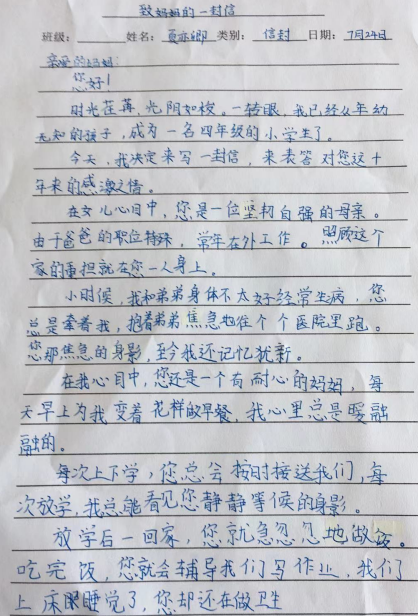 致妈妈的一封信
班级： 姓名：夏亦卿 类别：信封 日期：7月24日
亲爱的妈妈：
您好！
时光荏苒，光阴如梭。一转眼，我已经从年幼
无知的孩子，成为一名四年级的小学生了。
今天，我决定来写一封信，来表答对您这十
年来的感激之情。
在女儿心目中，您是一位坚韧自强的母亲。
由于爸爸的职位特殊，常年在外工作。照顾这个
家的重担就在您一人身上。
小时候，我和弟弟身体不太好经常生病，您
总是牵着我，抱着弟弟焦急地往个个医院里跑。
您那焦急的身影，至今我还记忆犹新。
在我心目中，您还是一个有耐心的妈妈，每
天早上为我变着花样做早餐，我心里总是暖融
融的。
每次上下学，您总会按时接送我们，每
次放学，我总能看见您静静等候的身影。
放学后一回家，您就急急忽忽地做饭。
吃完饭，您就会辅导我们写作业，我们
上床睡觉了，您却还在做卫生